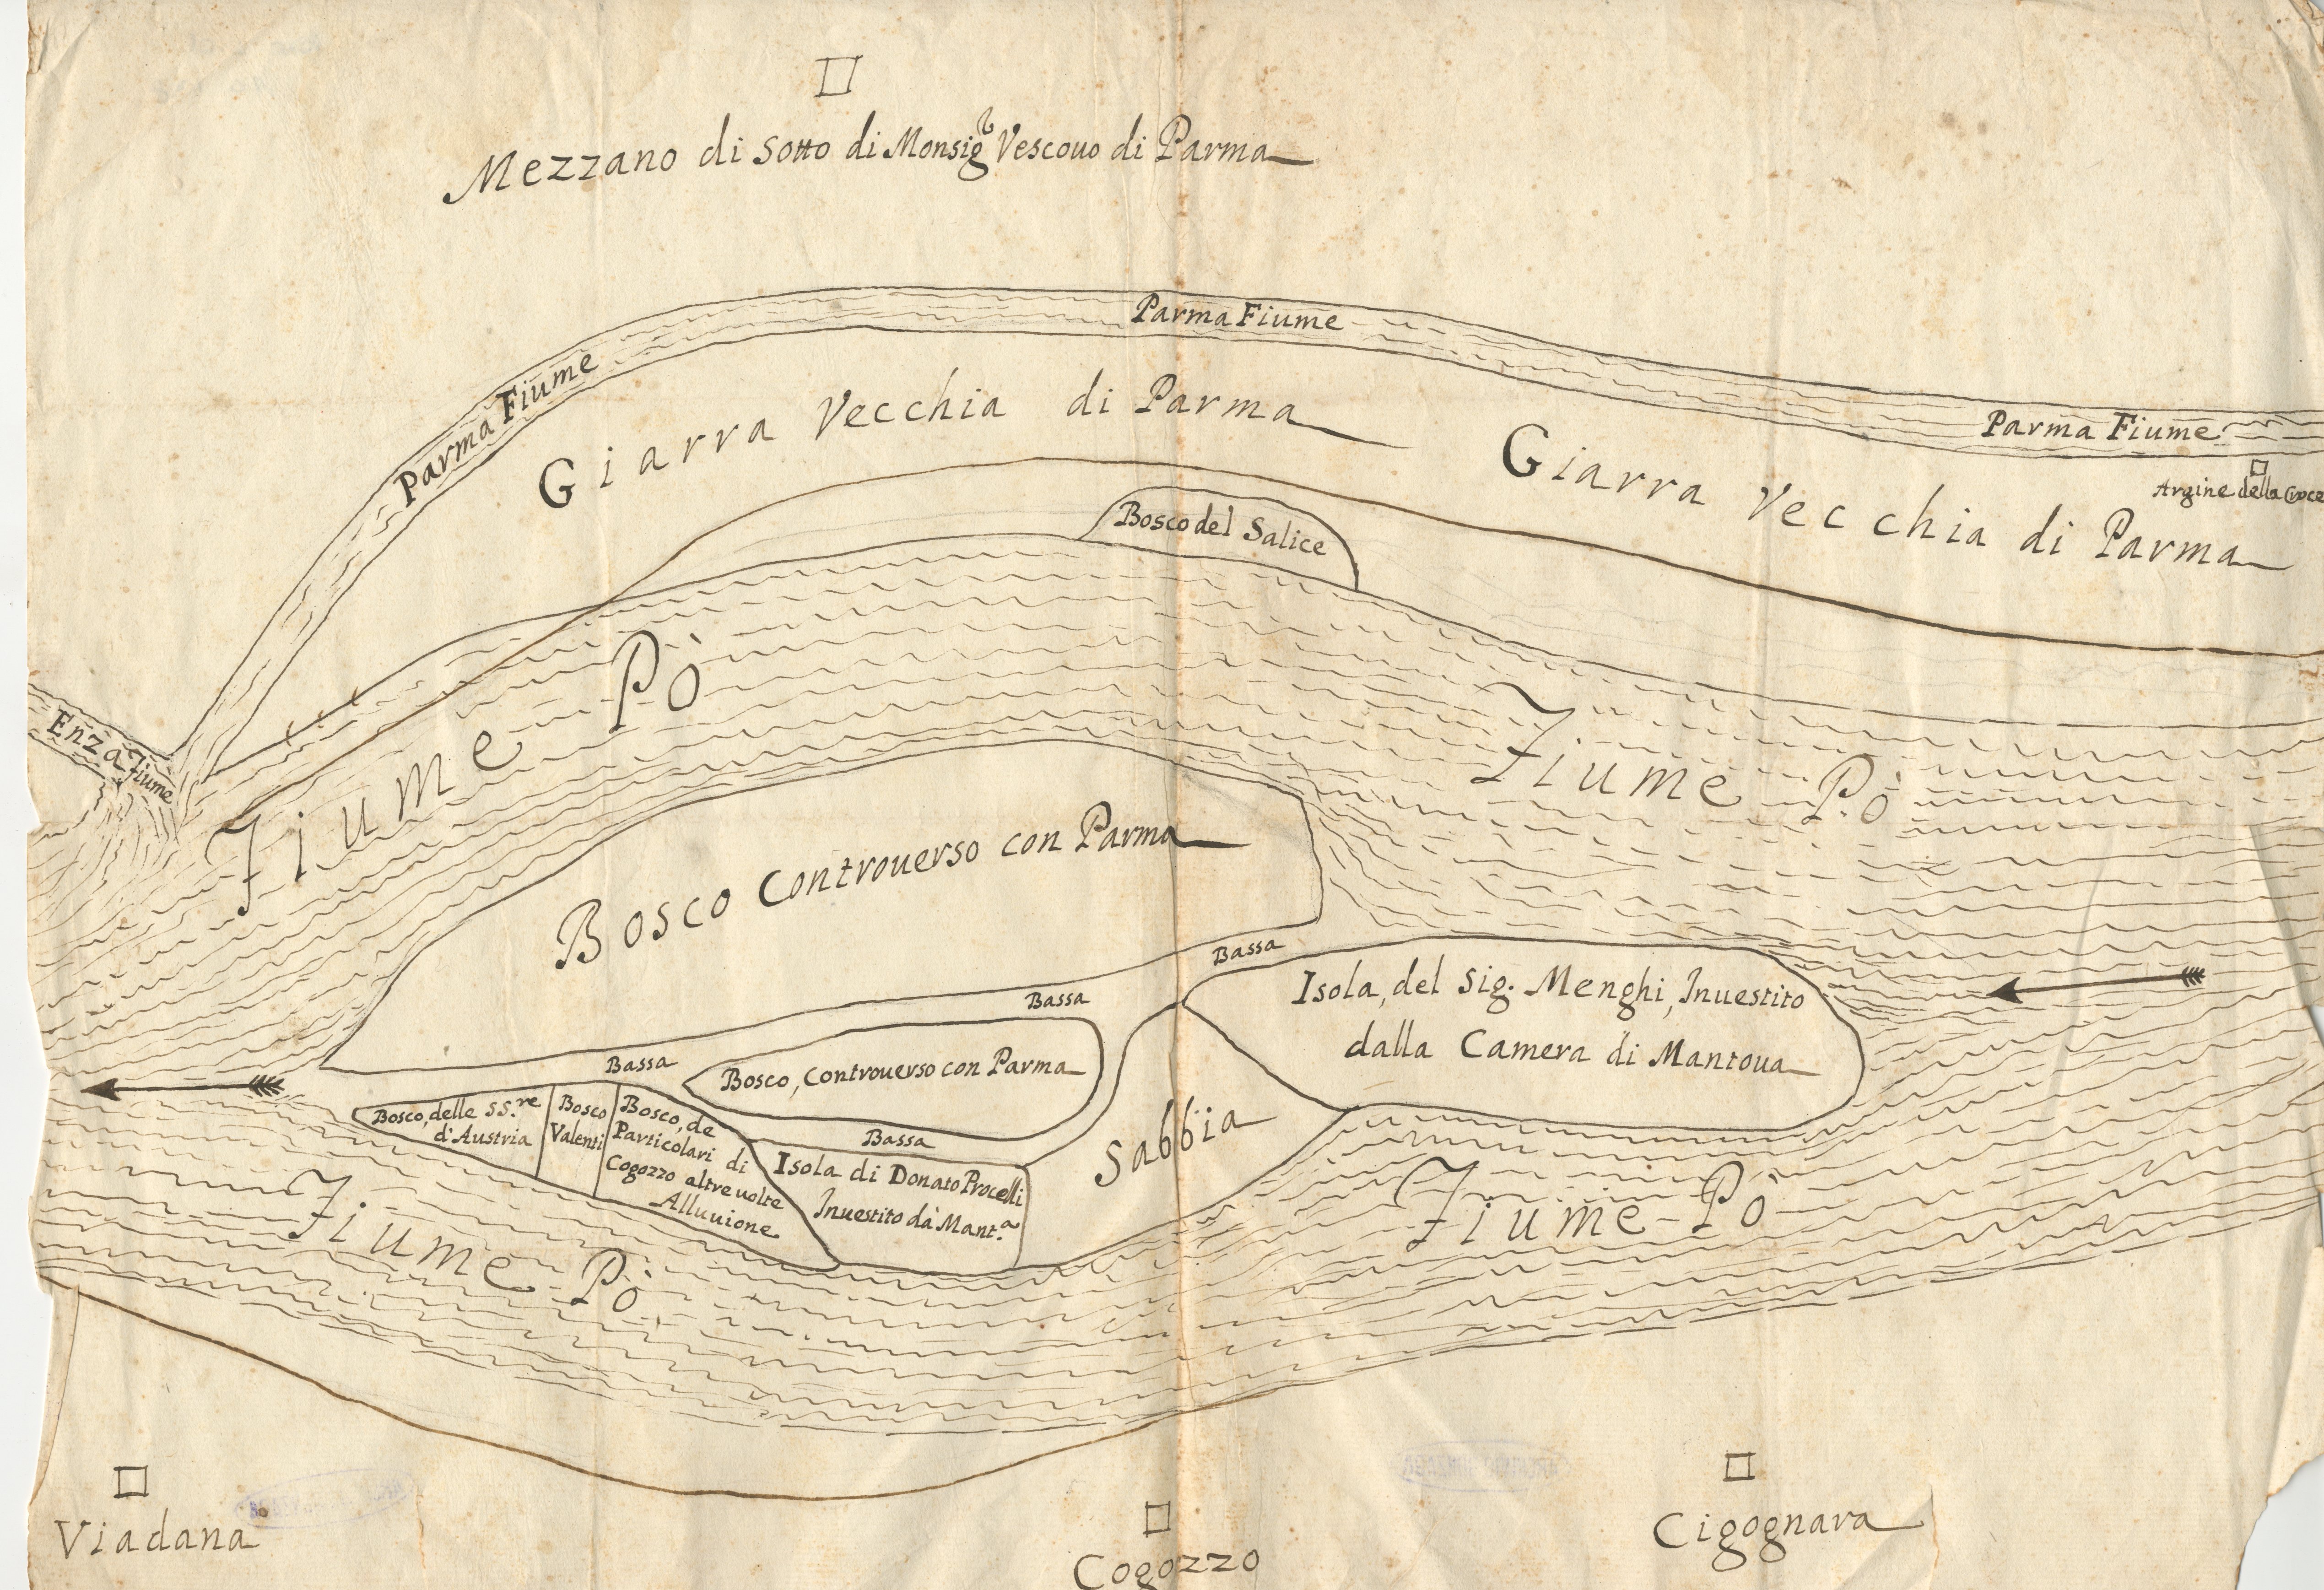 Mezzano di Sotto di Monsig.r Vescouo di Parma
Parma Fiume
Parma Fiume
Parma Fiume
Argine della Croce
Giarra Vecchia di Parma
Giarra Vecchia di Parma
Bosco del Salice
Enza Fiume
Fiume Pò
Fiume Pò
Bosco Controuerso con Parma
Bassa
Bassa
Bassa
Isola, del Sig. Menghi, Inuestito
dalla Camera di Mantoua
Bosco, Controuerso con Parma
Bosco, delle SS.re
d'Austria
Bosco
Valenti
Bosco, de
Particolari di
Cogozzo altre uolte
Alluuione
Bassa
Isola di Donato Procelli
Inuestito dà Mant.a
Sabbia
Fiume Pò
Fiume Pò
Viadana
Cogozzo
Cigognara